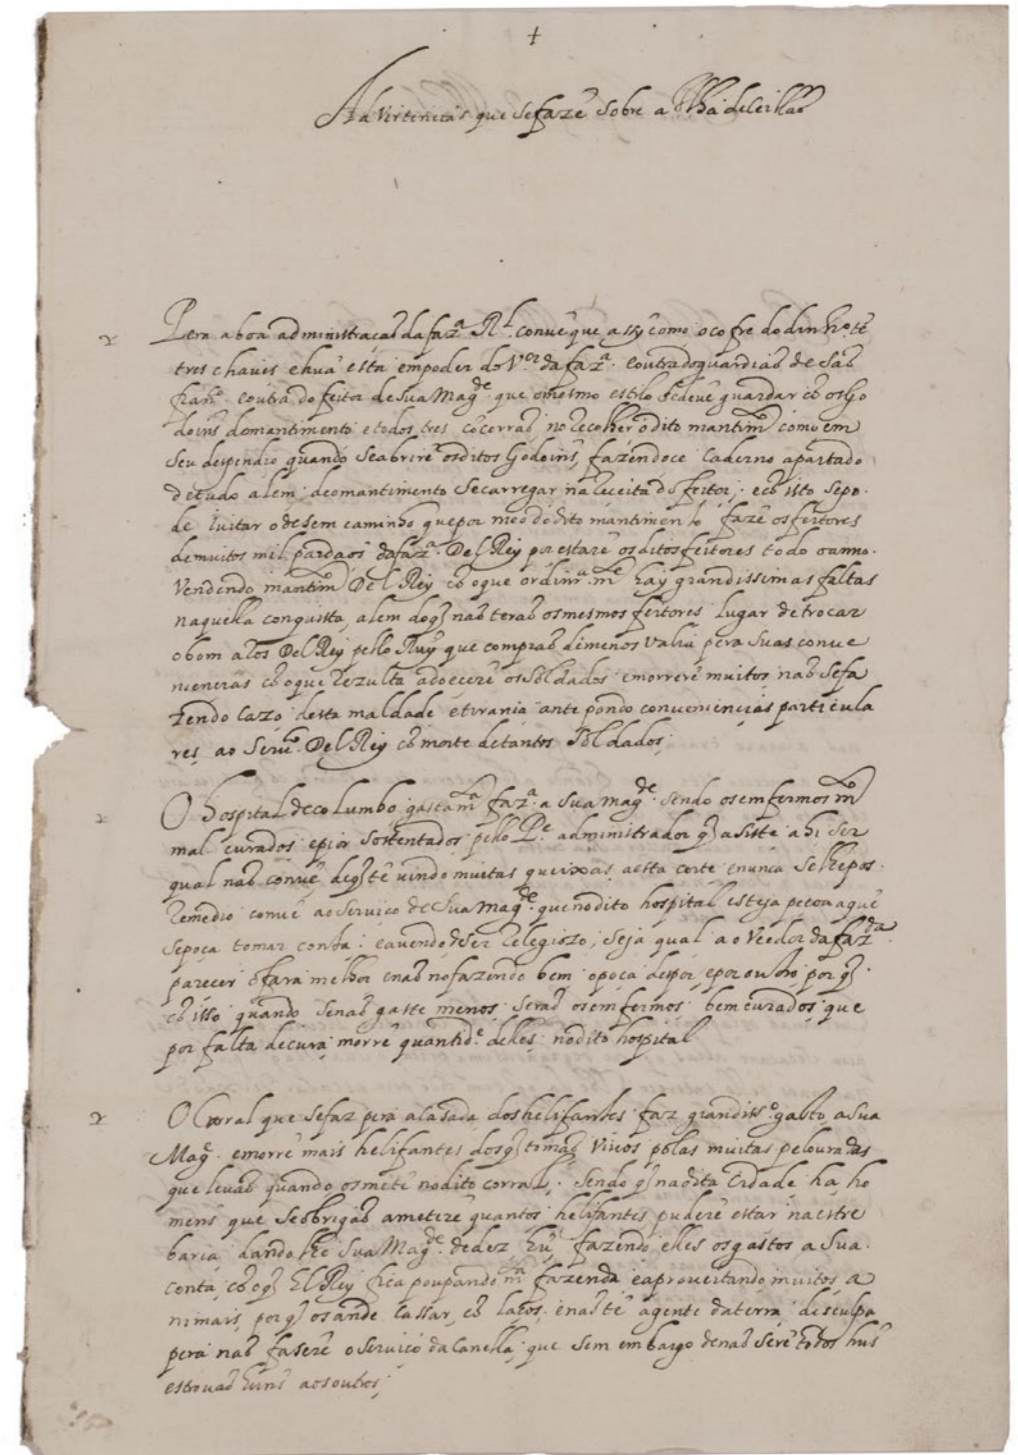 +
Advirtencias que se fazẽ sobre a Ilha de Ceillaõ
Pera a boa administraçaõ da faz.ª R.l convẽ que assy como o cofre do dinhr.º tẽ
tres chaves e huã está em poder do V.or da faz.ª e outra do guardiaõ de Saõ
Fran.co e outra do feitor de Sua Mag.de que o mesmo estilo se deve guardar cõ os Go
doins do mantimento e todos tres cõcerraõ no recolher o dito mantim.to como em
seu despendio quando se abrirẽ os ditos Godoins, fazendoce caderno apartado
de tudo alem de o mantimento se carregar na receita do feitor; e cõ isto se po
de evitar o desem caminho que por meo do dito mantimento fazẽ os feitores
de muitos mil pardaos da faz.ª Del Rey por estarẽ os ditos feitores todo o anno
vendendo mantim.to Del Rey cõ o que ordinr.ªm.te hay grandissimas faltas
naquella conquista, alem do q̃ naõ teraõ os mesmos feitores lugar de trocar
o bom aros Del Rey pello Ruỹ que compraõ de menos valia pera suas conve
niencias cõ o que rezulta adoecerẽ os Soldados e morrerẽ muitos naõ se fa
zendo cazo desta maldade e tirania ante pondo conveniencias particula
res, ao serv.ço Del Rey cõ morte de tantos Soldados;
O hospital de columbo gasta m.ta faz.ª a Sua Mag.de sendo os emfermos m.to
mal curados e pior sostentados pello P.e administrador q̃ asiste ahi ser
qual naõ convẽ, de q̃ tẽ vindo muitas queixas a esta corte e nunca se lhe pos
remedio convẽ ao serviço de Sua Mag.de que no dito hospital esteja pecoa a quẽ
se poça tomar conta; e avendo de ser relegiozo, seja qual ao Veedor da faz.da
parecer o fara melhor e naõ no fazendo bem o poça depor, e por outro, por q̃
cõ isso quando se naõ gaste menos seraõ os emfermos bem curados, que
por falta de cura morrẽ quantid.e delles no dito hospital
O Corral que se faz pera a casada dos helifantes faz grandiss.º gasto a Sua
Mag.e e morrẽ mais helifantes dos q̃ tomaõ vivos polas muitas pelouradas
que levaõ quando os metẽ no dito corral; sendo q̃ na dita Cidade ha ho
mens que se obrigaõ a meterẽ quantos helifantes puderẽ estar na estre
baria, dando lhe Sua Mag.de de dez, hũ, fazendo elles os gastos a sua
conta, cõ o q̃ El Rey fica poupando m.ta fazenda e aproveitando muitos a
nimais, por q̃ os ande cassar, cõ laços e naõ tẽ a gente da terra desculpa
pera naõ faserẽ o serviço da Canella, que sem embargo de naõ serẽ todos hus
estrovaõ huns aos outros;